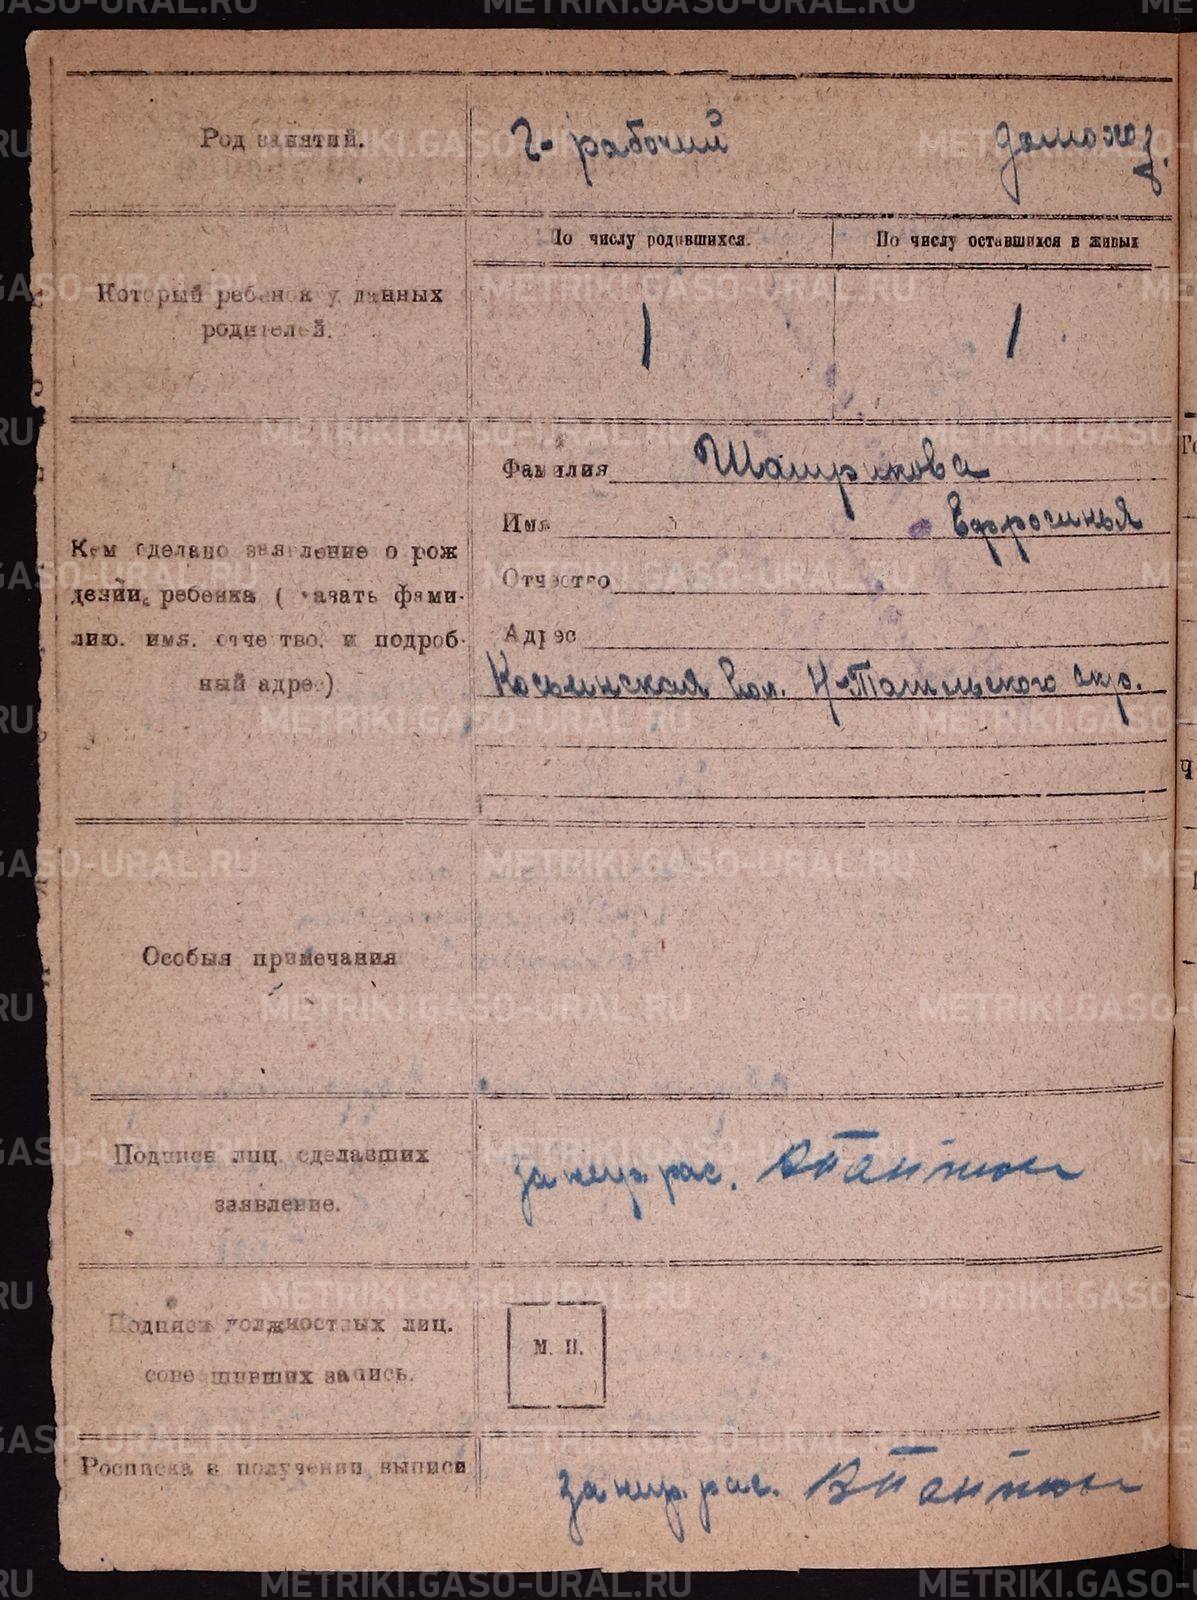 Род занятий.
Ч- рабочий домохоз.
По числу родившихся.
По числу оставшихся в живых
Который ребенок у данных
родителей.
1 1
Кем сделано заявление о рож
дении ребенка ( казать фами-
лию. имя. отчество. и подроб-
ный адрес)
Фамилия
Имя Ефросинья
Отчество
Адрес
вол. Н-Тагильского окр.
Особыя примечания
Подписи лиц. сделавших
заявление.
за негр. рас.
Подписи должностных лиц.
совершивших запись.
М. П.
Росписка в получении выписи
за негр. рас.
METRIKI.GASO-URAL.RU